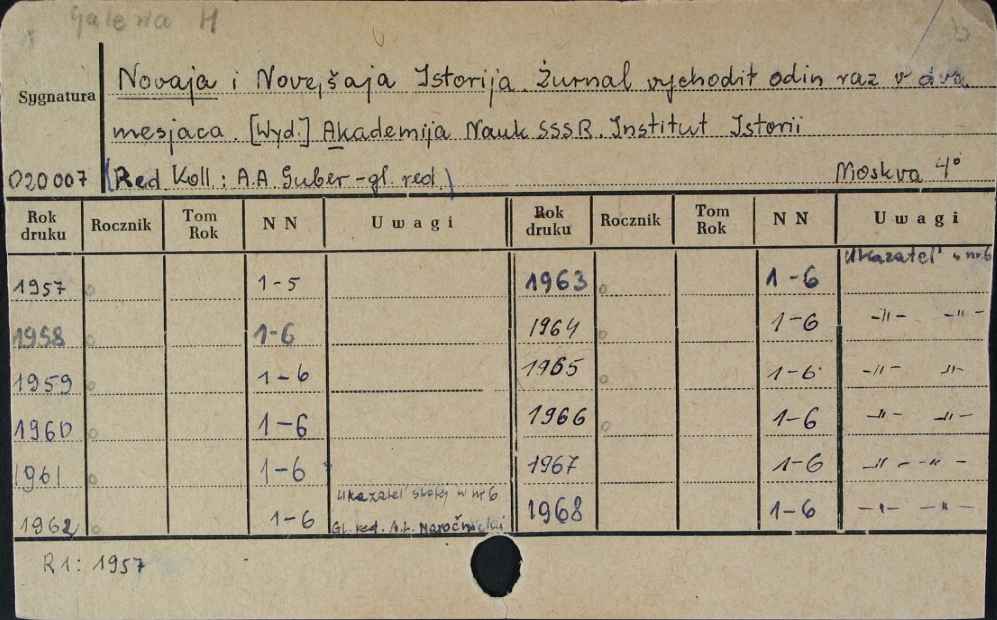 Galeria H
Sygnatura
Novaja i Novejšaja Istorija. Žurnal vychodit odin raz v dva
mesjaca. [Wyd.] Akademija Nauk SSSR. Institut Istorii
020007 (Red Koll: A.A. Guber - gl. red.) Moskva 4°
Rok druku Rocznik Tom Rok NN Uwagi Rok druku Rocznik Tom Rok NN Uwagi
1957 1-5 1963 1-6 Ukazatel' w nr 6
1958 1-6 1964 1-6 -"- -"-
1959 1-6 1965 1-6 -"- -"-
1960 1-6 1966 1-6 -"- -"-
1961 1-6 1967 1-6 -"- -"-
1962 1-6 Ukazatel' w nr 6 1968 1-6 -"- -"-
Gl. red. A.L. Naročnickij
R1: 1957